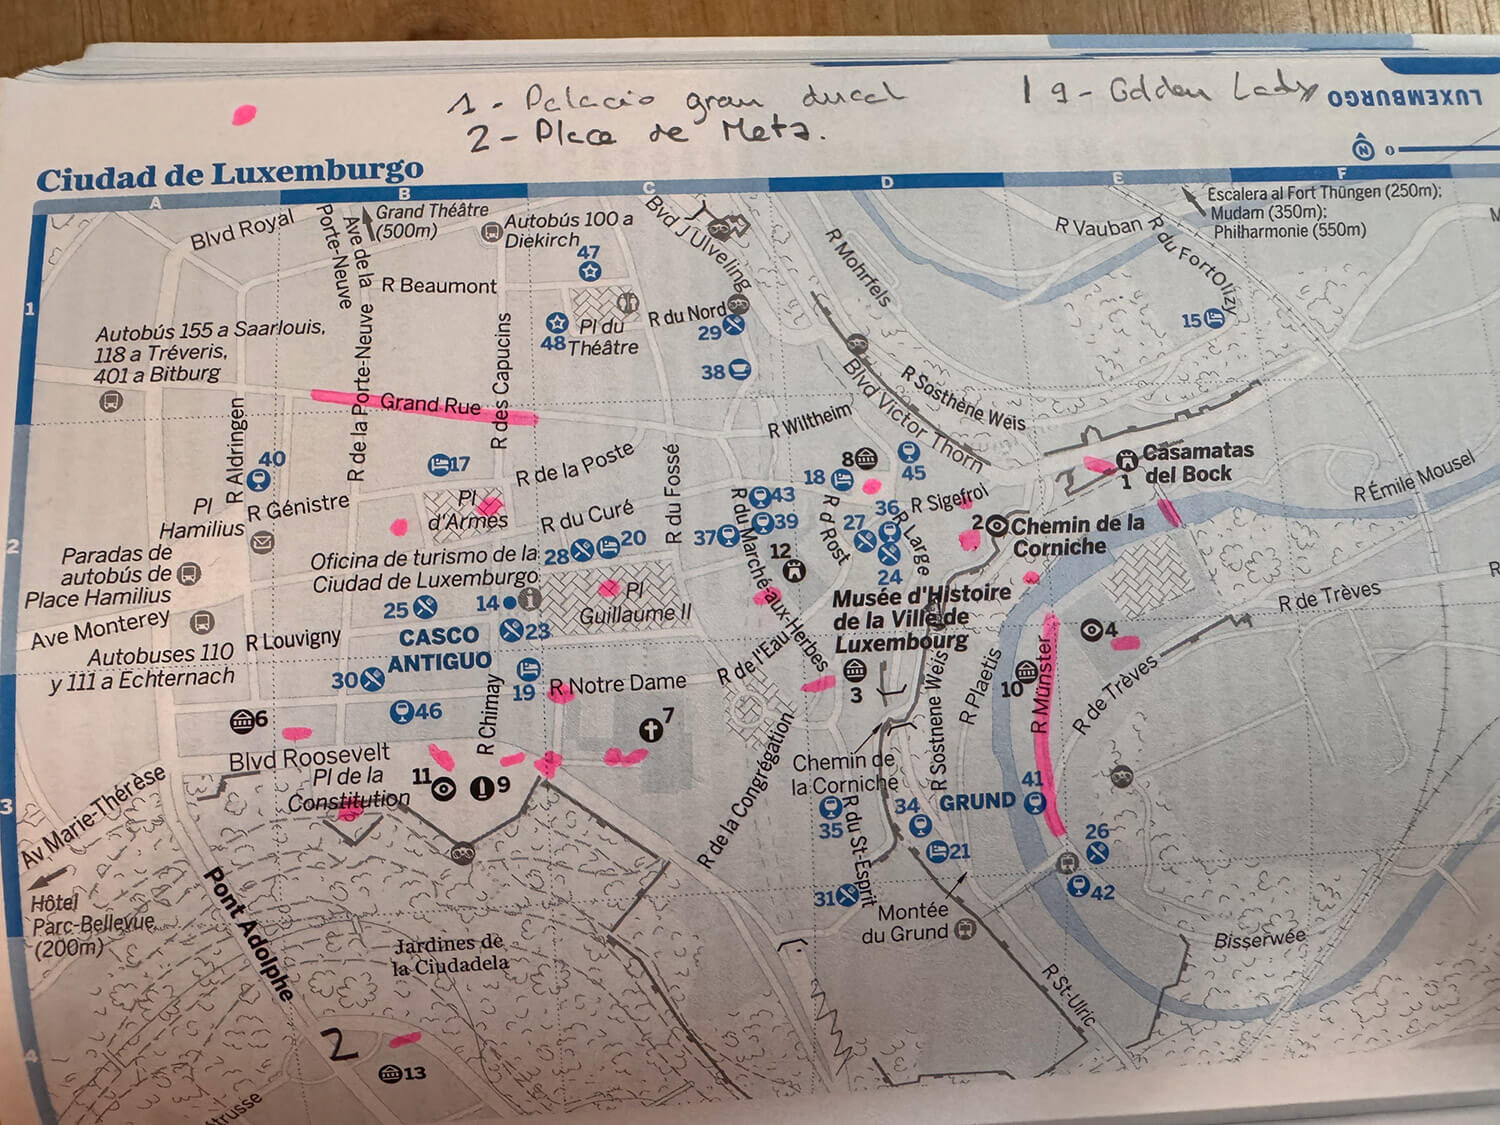 1 - Palacio gran ducal
2 - Place de Metz.
1 9 - Golden Lady
LUXEMBURGO
N 0
Ciudad de Luxemburgo
A B C D E F
1
2
3
4
Blvd Royal
Porte-Neuve
Ave de la
Grand Théâtre
(500m)
Autobús 100 a
Diekirch
47
Blvd J Ulveling
R Mohrfels
R Vauban
R du Fort Olizy
Escalera al Fort Thüngen (250m);
Mudam (350m);
Philharmonie (550m)
R Beaumont
Autobús 155 a Saarlouis,
118 a Tréveris,
401 a Bitburg
R de la Porte-Neuve
R des Capucins
48
Pl du
Théâtre
R du Nord
29
38
15
Blvd Victor Thorn
R Sosthène Weis
Grand Rue
R Aldringen
40
17
R de la Poste
R du Fossé
R Wiltheim
8
18
45
Casamatas
del Bock
1
R Émile Mousel
Pl
Hamilius
R Génistre
Pl
d'Armes
R du Curé
43
39
37
R du Marché-aux-Herbes
R d Rost
27
36
R Large
R Sigefroi
24
2 Chemin de la
Corniche
Paradas de
autobús de
Place Hamilius
Oficina de turismo de la
Ciudad de Luxemburgo
28
20
12
Ave Monterey
25
14
i
Pl
Guillaume II
Musée d'Histoire
de la Ville de
Luxembourg
4
R de Trèves
Autobuses 110
y 111 a Echternach
R Louvigny
CASCO
ANTIGUO
23
30
19
R Notre Dame
R de l'Eau
3
R Plaetis
10
R Münster
R de Trèves
6
46
R Chimay
7
Blvd Roosevelt
Pl de la
Constitution
11
9
R de la Congrégation
Chemin de
la Corniche
R Sostnene Weis
35
R du St-Esprit
34
GRUND
41
Av Marie-Thérèse
26
21
31
42
Hôtel
Parc-Bellevue
(200m)
Pont Adolphe
Jardines de
la Ciudadela
Montée
du Grund
Bisserwée
R St-Ulric
2
13